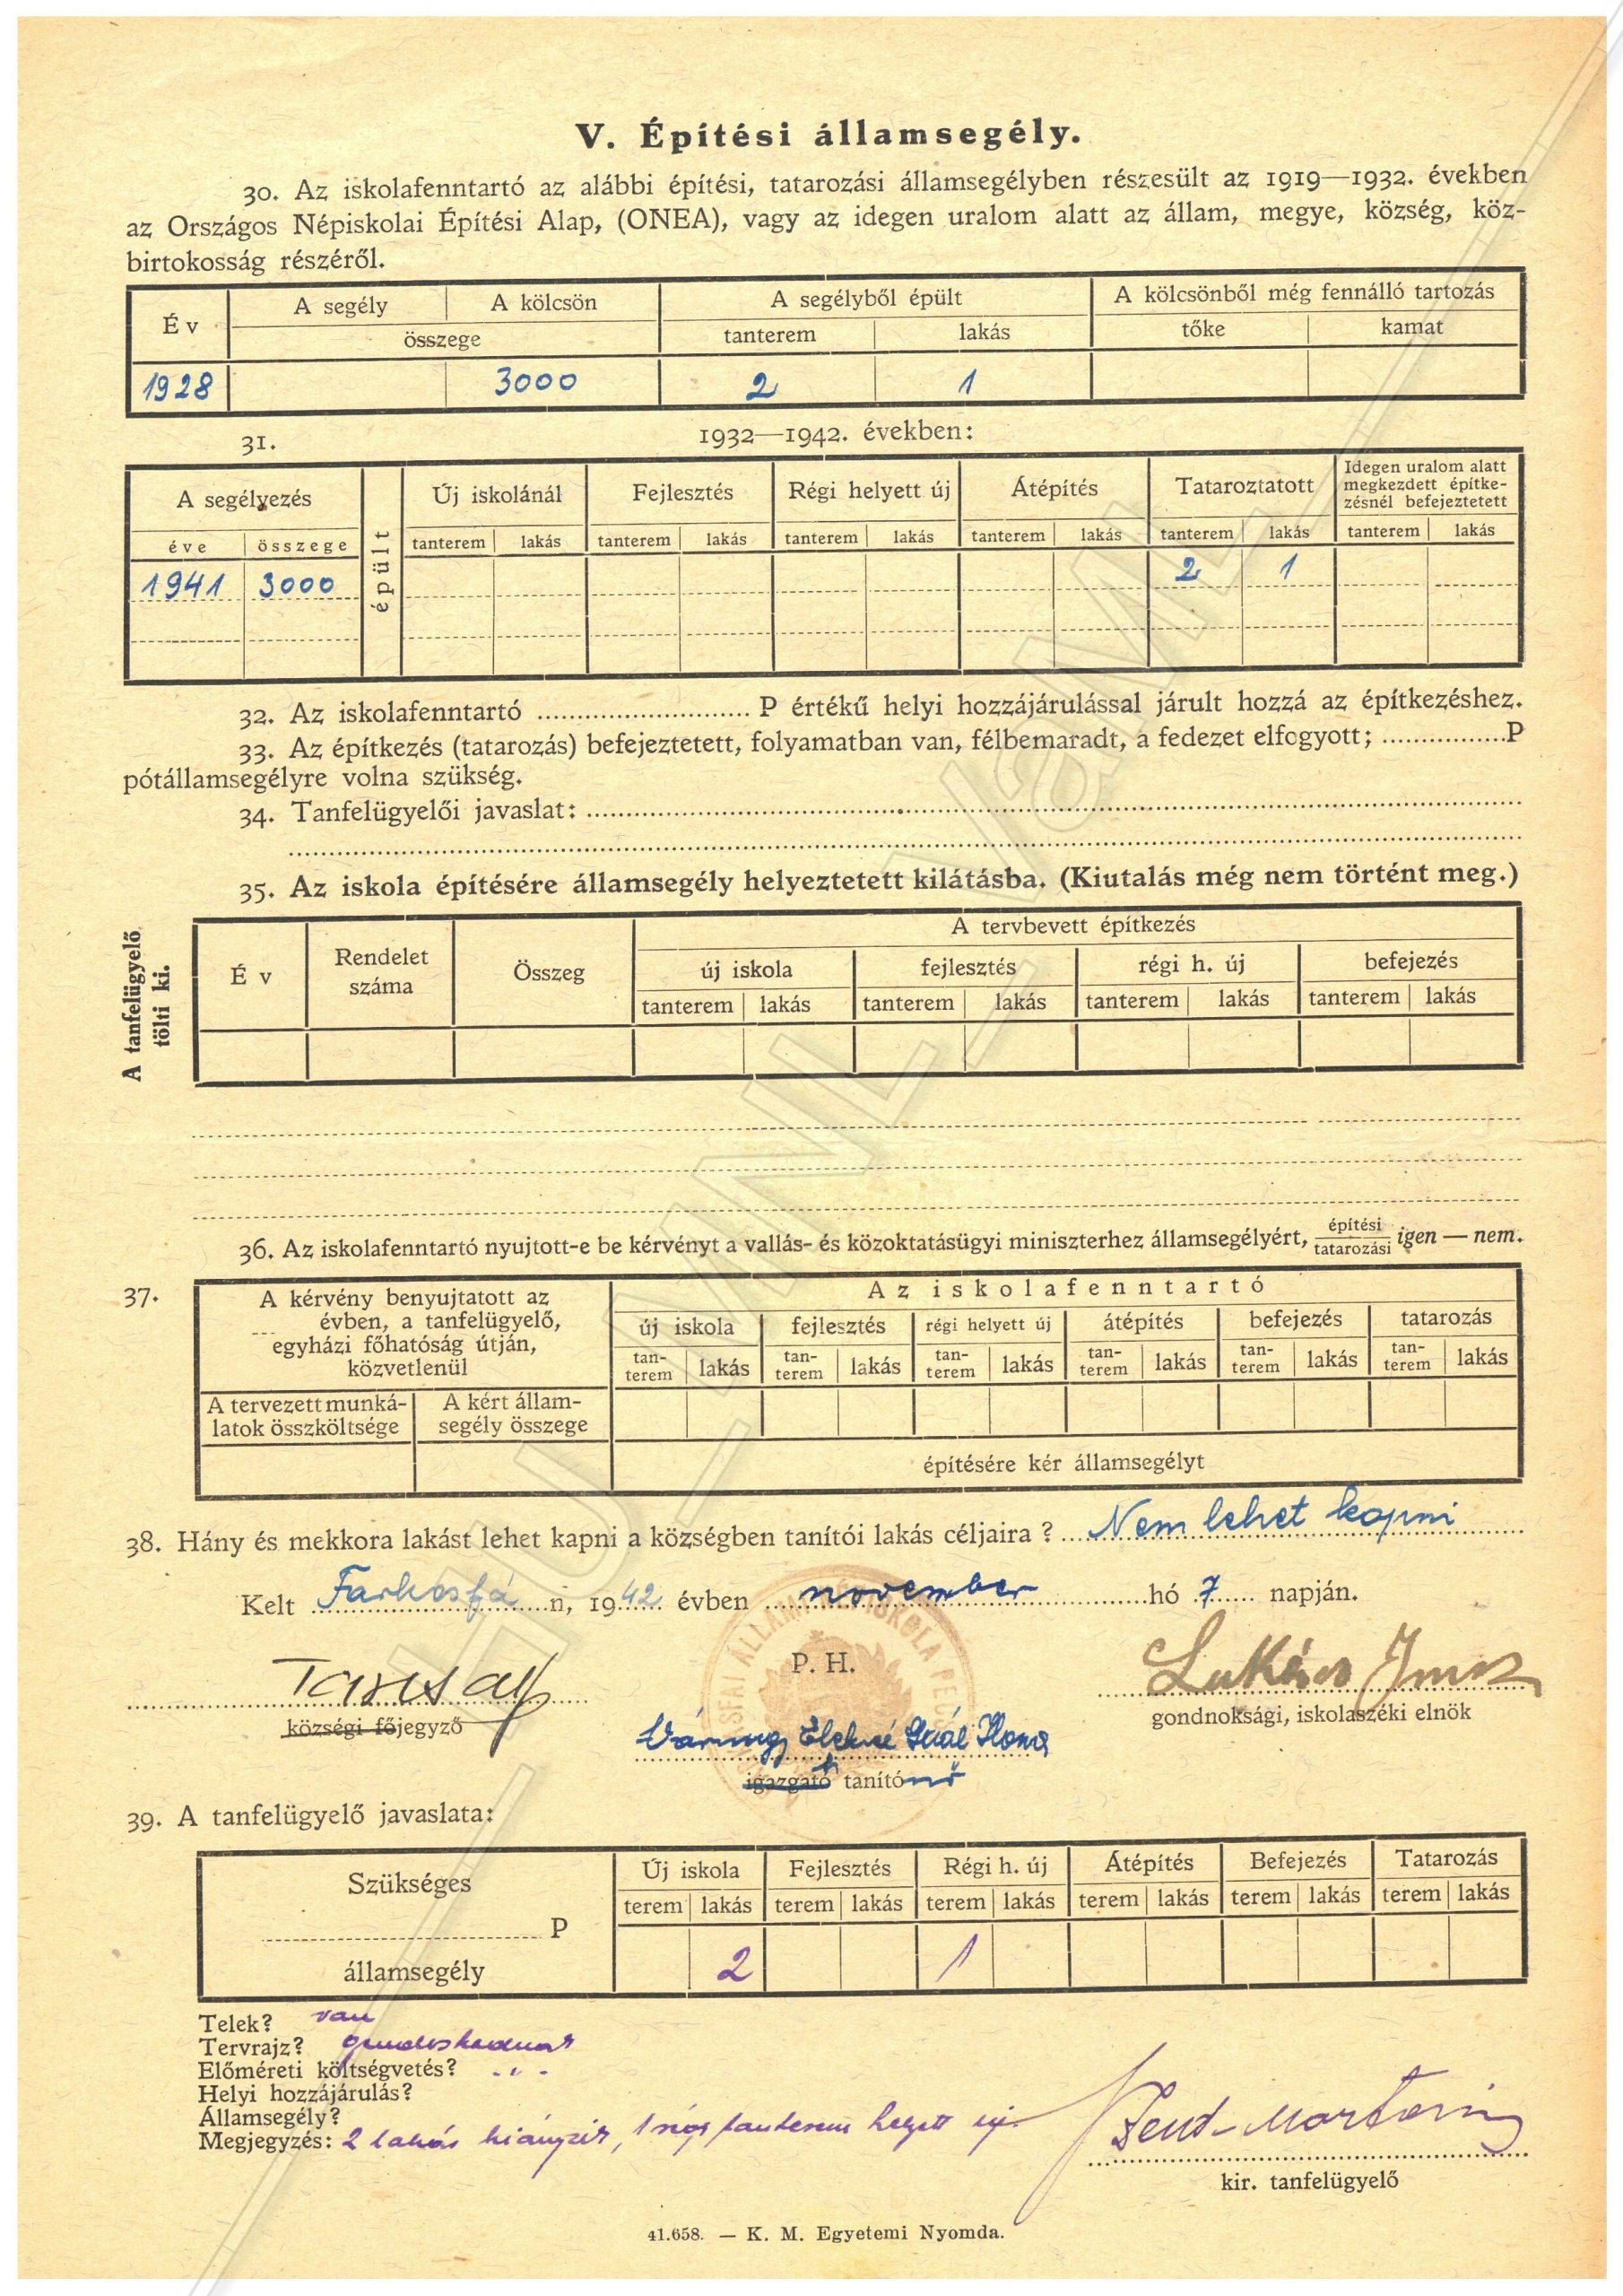 V. Építési államsegély.
30. Az iskolafenntartó az alábbi építési, tatarozási államsegélyben részesült az 1919—1932. években
az Országos Népiskolai Építési Alap, (ONEA), vagy az idegen uralom alatt az állam, megye, község, köz-
birtokosság részéről.
Év A segély A kölcsön A segélyből épült A kölcsönből még fennálló tartozás
összege tanterem lakás tőke kamat
1928 3000 2 1
31. 1932—1942. években:
A segélyezés épült Új iskolánál Fejlesztés Régi helyett új Átépítés Tataroztatott Idegen uralom alatt
megkezdett építke-
zésnél befejeztetett
éve összege tanterem lakás tanterem lakás tanterem lakás tanterem lakás tanterem lakás tanterem lakás
1941 3000 2 1
32. Az iskolafenntartó ........ P értékű helyi hozzájárulással járult hozzá az építkezéshez.
33. Az építkezés (tatarozás) befejeztetett, folyamatban van, félbemaradt, a fedezet elfogyott; ........P
pótállamsegélyre volna szükség.
34. Tanfelügyelői javaslat: ........
35. Az iskola építésére államsegély helyeztetett kilátásba. (Kiutalás még nem történt meg.)
A tanfelügyelő
tölti ki.
A tervbevett építkezés
Év Rendelet Összeg új iskola fejlesztés régi h. új befejezés
száma tanterem lakás tanterem lakás tanterem lakás tanterem lakás
36. Az iskolafenntartó nyujtott-e be kérvényt a vallás- és közoktatásügyi miniszterhez államsegélyért, építési
tatarozási igen — nem.
37. A kérvény benyujtatott az Az iskolafenntartó
... évben, a tanfelügyelő, új iskola fejlesztés régi helyett új átépítés befejezés tatarozás
egyházi főhatóság útján,
közvetlenül
tan-
terem lakás tan-
terem lakás tan-
terem lakás tan-
terem lakás tan-
terem lakás tan-
terem lakás
A tervezett munká-
latok összköltsége
A kért állam-
segély összege
építésére kér államsegélyt
38. Hány és mekkora lakást lehet kapni a községben tanítói lakás céljaira ? Nem lehet kapni
Kelt Farkasfá n, 1942 évben november hó 7 napján.
P. H.
Lukács Imre
községi főjegyző
gondnoksági, iskolaszéki elnök
Elekné Gaál Ilona
igazgató tanítónő
39. A tanfelügyelő javaslata:
Szükséges Új iskola Fejlesztés Régi h. új Átépítés Befejezés Tatarozás
terem lakás terem lakás terem lakás terem lakás terem lakás terem lakás
........ P
államsegély 2 1
Telek? van
Tervrajz? gondoskodnak
Előméreti költségvetés? - " -
Helyi hozzájárulás?
Államsegély?
Megjegyzés: 2 lakás hiányzik, 1 régi tanterem helyett új.
kir. tanfelügyelő
41.658. — K. M. Egyetemi Nyomda.
HU_MNL_VaML